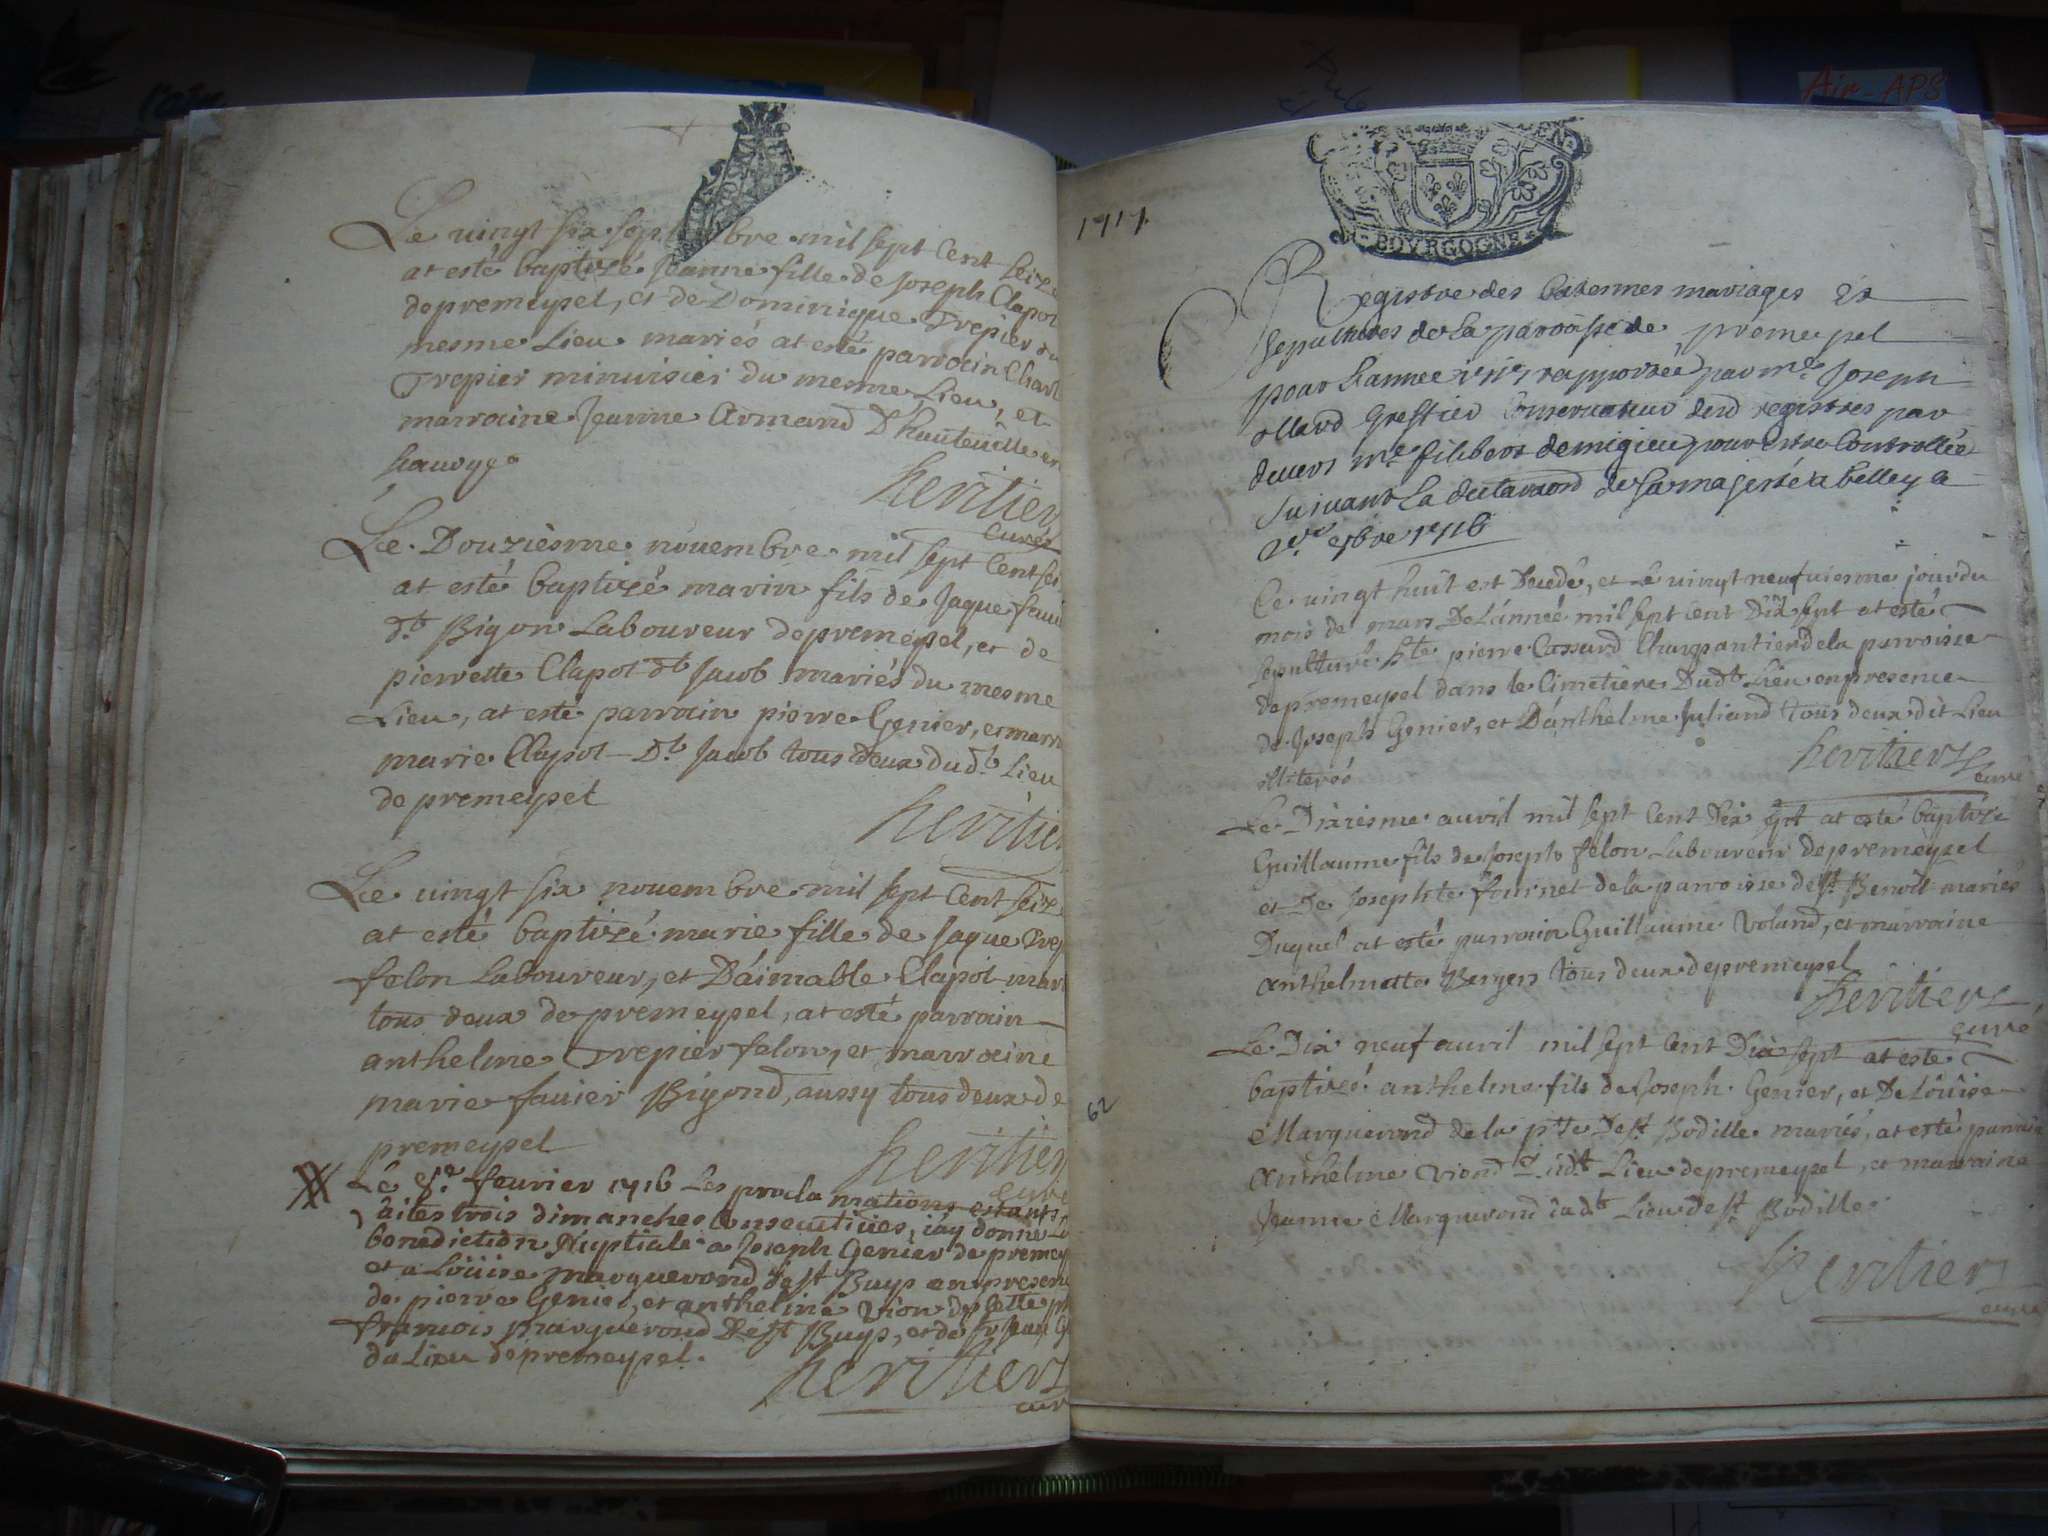 Air-APS
Le vingt six sep bre mil sept Cent seize
at esté baptizé Jeanne fille de Joseph Clapot
de premeysel, et de Dominique Trepier du
mesme Lieu mariés at esté parrain Charl
Trepier minuisier du mesme Lieu, et
marraine Jeanne Armand D'hauteville en
heritier
curé
Le Douziesme novembre mil sept Cent sei
at esté baptizé marin fils de Jaque favi
dt Bigon Laboureur de premeysel, et de
pierrette Clapot dt Jacob mariés du mesme
Lieu, at esté parrain pierre Genier, et marr
marie Clapot Dt Jacob tous deux dudt Lieu
de premeysel
heritier
Le vingt six novembre mil sept Cent seize
at esté baptizé marie fille de Jaque Trep
felon Laboureur, et D'aimable Clapot mari
tous deux de premeysel, at esté parrain
anthelme Trepier felon, et marraine
marie favier Bigond, aussy tous deux de
premeysel
heritier
curé
Le fevrier 1716 Les proclamations estants
faites trois dimanches Consecutives, j'ay donné La
benediction Nuptiale a Joseph Genier de premey
et a Loüise marquerond de st Buys en presen
de pierre Genier, et anthelme Vion de cette
francois marquerond De st Buys, et de
du Lieu de premeysel.
heritier
curé
1717.
BOVRGOGNE
Registre des Batesmes mariages Et
Sepultures de la parroisse de premeysel
pour L'annee 1717 rapportée par me Joseph
ollard Greffier Conservateur desd registres par
devers me filibert demigieu pour Estre Controllée
suivant La declaraond de sa majesté a belley
9bre 1716
Le vingt huit est Decedé, et Le vingt neufviesme jour du
mois de mars De L'année mil sept cent Dix sept at esté
sepulturé hte pierre Cassard Charpantier de la parroisse
de premeysel dans le Cimetiere Dudt Lieu en presence
de Joseph Genier, et D'anthelme Juliand tous deux dit Lieu
illiterés
heritier
curé
Le Dixiesme avril mil sept Cent Dix sept at esté baptizé
Guillaume fils de Joseph felon Laboureur de premeysel
et De Josephte fournet de la parroisse de st Benoit mariés
Duquel at esté parrain Guillaume Voland, et marraine
Anthelmette Bergers tous deux de premeysel
heritier
curé
Le Dix neuf avril mil sept Cent Dix sept at esté
baptizé anthelme fils de Joseph Genier, et De Loüise
Marquerond de la pte De st Bodille mariés, at esté parrain
Anthelme Viond Dudt Lieu de premeysel, et marraine
Jeanne Marquerond dudt Lieu de st Bodille
heritier
curé
62